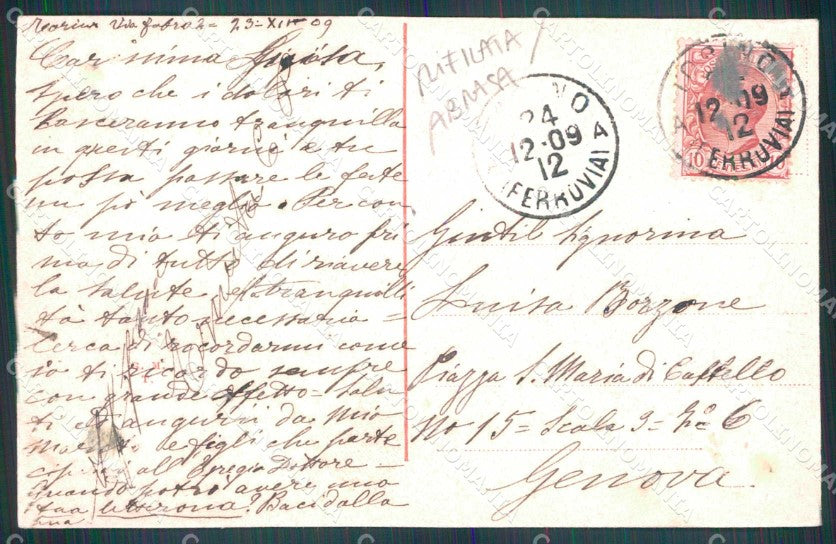 Torino Via 23-XII 09
Carissima Luisa,
spero che i dolori ti
lasceranno tranquilla
in questi giorni e tu
possa passare le feste
un pò meglio. Per con
to mio ti auguro pri
ma di tutto di riavere
la salute e tranquilli
tà tanto necessaria =
Cerca di ricordarmi come
io ti ricordo sempre
con grande affetto = Salu
ti e auguri da mio
e figli che parte
al Egregio Dottore =
quando potrò avere una
tua ? Baci dalla
tua
RIFILATA
ABRASA
NO
24
12-09
12
(FERROVIA)
TORINO
12-09
12
(FERROVIA)
10
Gentil Signorina
Luisa Borzone
Piazza S. Maria di Castello
No 15 = Scala = 6
Genova
CARTOLINOMANIA